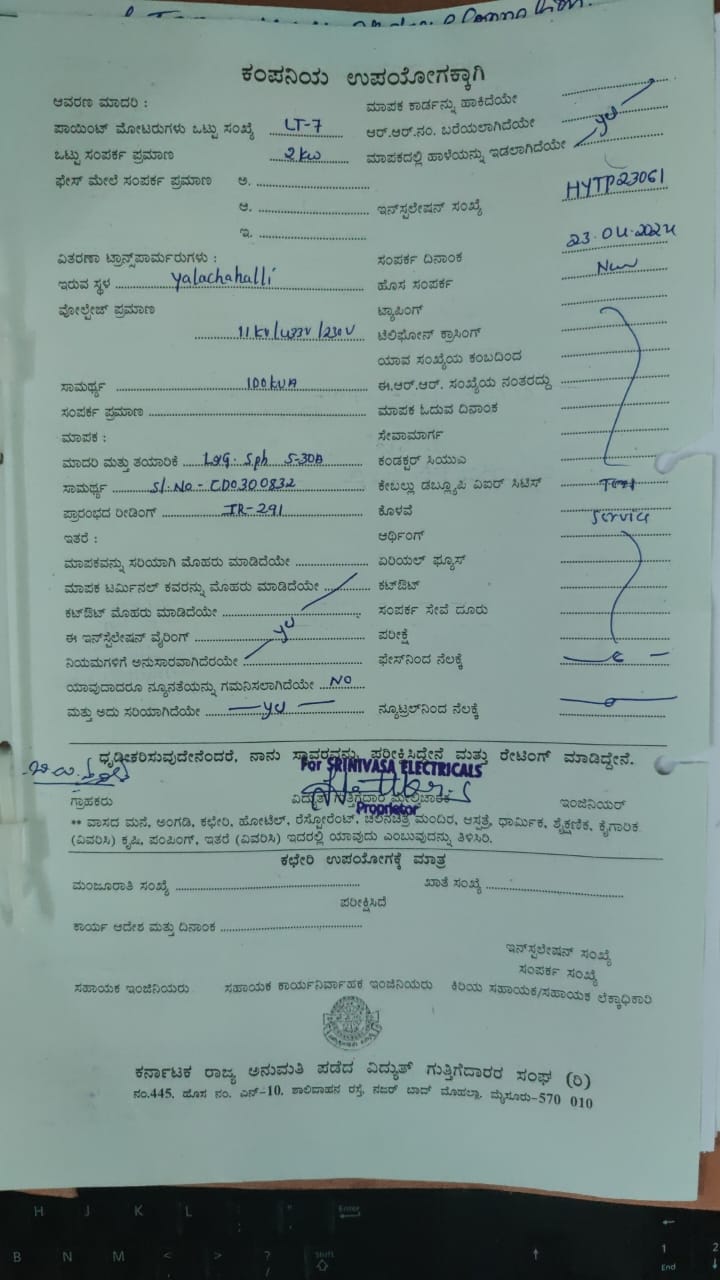 ಕಂಪನಿಯ ಉಪಯೋಗಕ್ಕಾಗಿ
ಆವರಣ ಮಾದರಿ :
ಮಾಪಕ ಕಾರ್ಡನ್ನು ಹಾಕಿದೆಯೇ
ಪಾಯಿಂಟ್ ಮೋಟರುಗಳು ಒಟ್ಟು ಸಂಖ್ಯೆ LT-7
ಆರ್.ಆರ್.ನಂ. ಬರೆಯಲಾಗಿದೆಯೇ
ಒಟ್ಟು ಸಂಪರ್ಕ ಪ್ರಮಾಣ 2 kw
ಮಾಪಕದಲ್ಲಿ ಹಾಳೆಯನ್ನು ಇಡಲಾಗಿದೆಯೇ
ಫೇಸ್ ಮೇಲೆ ಸಂಪರ್ಕ ಪ್ರಮಾಣ ಅ.
ಆ.
ಇನ್ಸ್ಟಲೇಷನ್ ಸಂಖ್ಯೆ HYTP23061
ಇ.
ವಿತರಣಾ ಟ್ರಾನ್ಸ್‌ಪಾರ್ಮರುಗಳು :
ಸಂಪರ್ಕ ದಿನಾಂಕ 23.04.2024
ಇರುವ ಸ್ಥಳ Yalachahalli
ಹೊಸ ಸಂಪರ್ಕ New
ವೋಲ್ಟೇಜ್ ಪ್ರಮಾಣ
ಟ್ಯಾಪಿಂಗ್
11 KV/433V/230V
ಟೆಲಿಫೋನ್ ಕ್ರಾಸಿಂಗ್
ಯಾವ ಸಂಖ್ಯೆಯ ಕಂಬದಿಂದ
ಸಾಮರ್ಥ್ಯ 100KVA
ಈ.ಆರ್.ಆರ್. ಸಂಖ್ಯೆಯ ನಂತರದ್ದು
ಸಂಪರ್ಕ ಪ್ರಮಾಣ
ಮಾಪಕ ಓದುವ ದಿನಾಂಕ
ಮಾಪಕ :
ಸೇವಾಮಾರ್ಗ
ಮಾದರಿ ಮತ್ತು ತಯಾರಿಕೆ L&G. Sph 5-30A
ಕಂಡಕ್ಟರ್ ಸಿಯುಎ
ಸಾಮರ್ಥ್ಯ Sl.No - CD0300832
ಕೇಬಲ್ಲು ಡಬ್ಲ್ಯೂಪಿ ಏಐರ್ ಸಿಟಿಸ್
ಪ್ರಾರಂಭದ ರೀಡಿಂಗ್ IR-291
ಕೊಳವೆ Service
ಇತರೆ :
ಆರ್ಥಿಂಗ್
ಮಾಪಕವನ್ನು ಸರಿಯಾಗಿ ಮೊಹರು ಮಾಡಿದೆಯೇ
ಏರಿಯಲ್ ಫ್ಯೂಸ್
ಮಾಪಕ ಟರ್ಮಿನಲ್ ಕವರನ್ನು ಮೊಹರು ಮಾಡಿದೆಯೇ
ಕಟ್‌ಔಟ್
ಕಟ್‌ಔಟ್ ಮೊಹರು ಮಾಡಿದೆಯೇ
ಸಂಪರ್ಕ ಸೇವೆ ದೂರು
ಈ ಇನ್ಸ್ಟಲೇಷನ್ ವೈರಿಂಗ್
ಪರೀಕ್ಷೆ
ನಿಯಮಗಳಿಗೆ ಅನುಸಾರವಾಗಿದೆರಯೇ
ಫೇಸ್‌ನಿಂದ ನೆಲಕ್ಕೆ
ಯಾವುದಾದರೂ ನ್ಯೂನತೆಯನ್ನು ಗಮನಿಸಲಾಗಿದೆಯೇ NO
ಮತ್ತು ಅದು ಸರಿಯಾಗಿದೆಯೇ
ನ್ಯೂಟ್ರಲ್‌ನಿಂದ ನೆಲಕ್ಕೆ
ಧೃಡೀಕರಿಸುವುದೇನೆಂದರೆ, ನಾನು ಸ್ಥಾವರವನ್ನು ಪರೀಕ್ಷಿಸಿದ್ದೇನೆ ಮತ್ತು ರೇಟಿಂಗ್ ಮಾಡಿದ್ದೇನೆ.
For SRINIVASA ELECTRICALS
ಗ್ರಾಹಕರು ವಿದ್ಯುತ್ ಗುತ್ತಿಗೆದಾರ ಮೇಲ್ವಿಚಾರಕ ಇಂಜಿನಿಯರ್
Proprietor
** ವಾಸದ ಮನೆ, ಅಂಗಡಿ, ಕಛೇರಿ, ಹೋಟೆಲ್, ರೆಸ್ಟೋರೆಂಟ್, ಚಲನಚಿತ್ರ ಮಂದಿರ, ಆಸ್ಪತ್ರೆ, ಧಾರ್ಮಿಕ, ಶೈಕ್ಷಣಿಕ, ಕೈಗಾರಿಕ
(ವಿವರಿಸಿ) ಕೃಷಿ, ಪಂಪಿಂಗ್, ಇತರೆ (ವಿವರಿಸಿ) ಇದರಲ್ಲಿ ಯಾವುದು ಎಂಬುವುದನ್ನು ತಿಳಿಸಿರಿ.
ಕಛೇರಿ ಉಪಯೋಗಕ್ಕೆ ಮಾತ್ರ
ಮಂಜೂರಾತಿ ಸಂಖ್ಯೆ ಖಾತೆ ಸಂಖ್ಯೆ
ಪರೀಕ್ಷಿಸಿದೆ
ಕಾರ್ಯ ಆದೇಶ ಮತ್ತು ದಿನಾಂಕ
ಇನ್ಸ್ಟಲೇಷನ್ ಸಂಖ್ಯೆ
ಸಂಪರ್ಕ ಸಂಖ್ಯೆ
ಸಹಾಯಕ ಇಂಜಿನಿಯರು ಸಹಾಯಕ ಕಾರ್ಯನಿರ್ವಾಹಕ ಇಂಜಿನಿಯರು ಕಿರಿಯ ಸಹಾಯಕ/ಸಹಾಯಕ ಲೆಕ್ಕಾಧಿಕಾರಿ
ಕರ್ನಾಟಕ ರಾಜ್ಯ ಅನುಮತಿ ಪಡೆದ ವಿದ್ಯುತ್ ಗುತ್ತಿಗೆದಾರರ ಸಂಘ (ರಿ)
ನಂ.445, ಹೊಸ ನಂ. ಎನ್-10, ಶಾಲಿವಾಹನ ರಸ್ತೆ, ನಜರ್ ಬಾದ್ ಮೊಹಲ್ಲಾ, ಮೈಸೂರು-570 010
H J K L Enter
B N M < > ? Shift 1 End 2